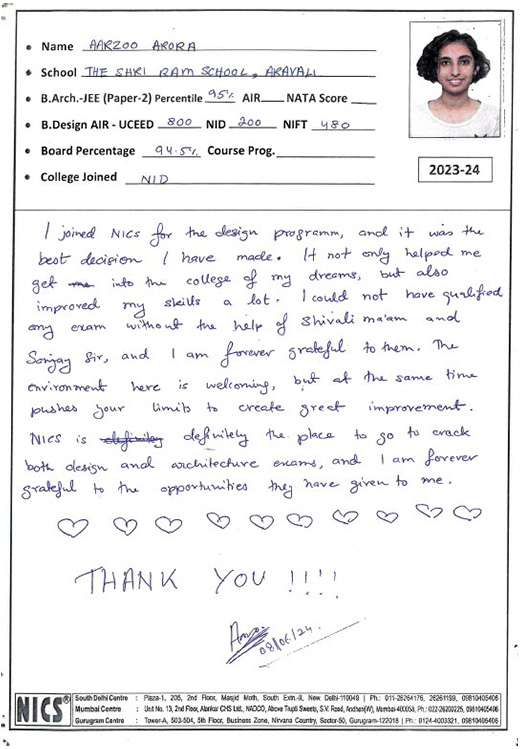 Name AARZOO ARORA
School THE SHRI RAM SCHOOL, ARAVALI
B.Arch.-JEE (Paper-2) Percentile 95% AIR NATA Score
B.Design AIR - UCEED 800 NID 200 NIFT 480
Board Percentage 94.5% Course Prog.
College Joined NID
2023-24
I joined NICS for the design programm, and it was the
best decision I have made. It not only helped me
get me into the college of my dreams, but also
improved my skills a lot. I could not have qualified
any exam without the help of Shivali ma'am and
Sanjay Sir, and I am forever grateful to them. The
environment here is welcoming, but at the same time
pushes your limits to create great improvement.
NICS is definitely the place to go to crack
both design and architecture exams, and I am forever
grateful to the opportunities they have given to me.
THANK YOU !!!!
08/06/24.
NICS®
South Delhi Centre : Plaza-1, 205, 2nd Floor, Masjid Moth, South Extn.-II, New Delhi-110049 | Ph.: 011-26264176, 26261199, 09810405406
Mumbai Centre : Unit No. 13, 2nd Floor, Alankar CHS Ltd., NADCO, Above Trupti Sweets, S.V. Road, Andheri(W), Mumbai-400058, Ph.: 022-26200225, 09810405406
Gurugram Centre : Tower-A, 503-504, 5th Floor, Business Zone, Nirvana Country, Sector-50, Gurugram-122018 | Ph.: 0124-4003321, 09810405406